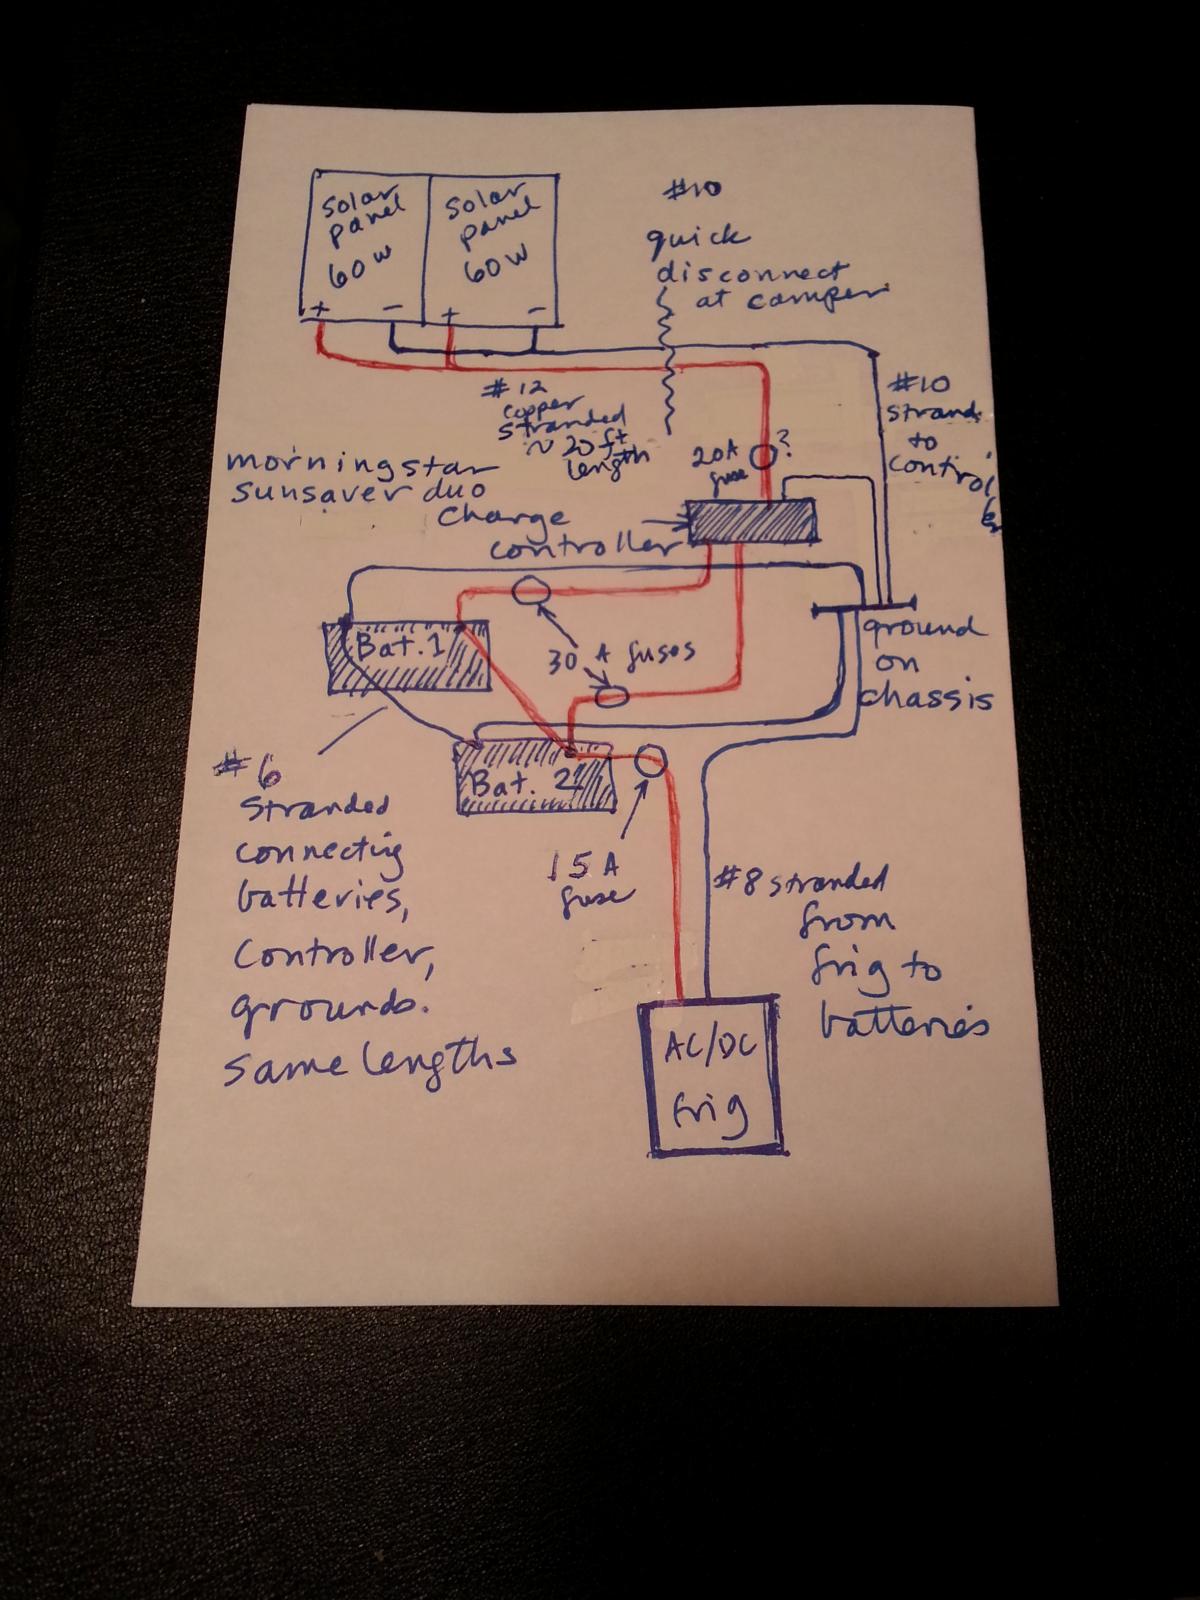 solar
panel
60w
+ -
solar
panel
60w
+ -
#10
quick
disconnect
at camper
#12
copper
stranded
~ 20 ft
length
#10
strand
to
control
morningstar
sunsaver duo
charge
controller
20A
fuse
?
Bat. 1
30 A fuses
ground
on
chassis
Bat. 2
#6
stranded
connecting
batteries,
controller,
grounds.
same lengths
15A
fuse
#8 stranded
from
frig to
batteries
AC/DC
frig